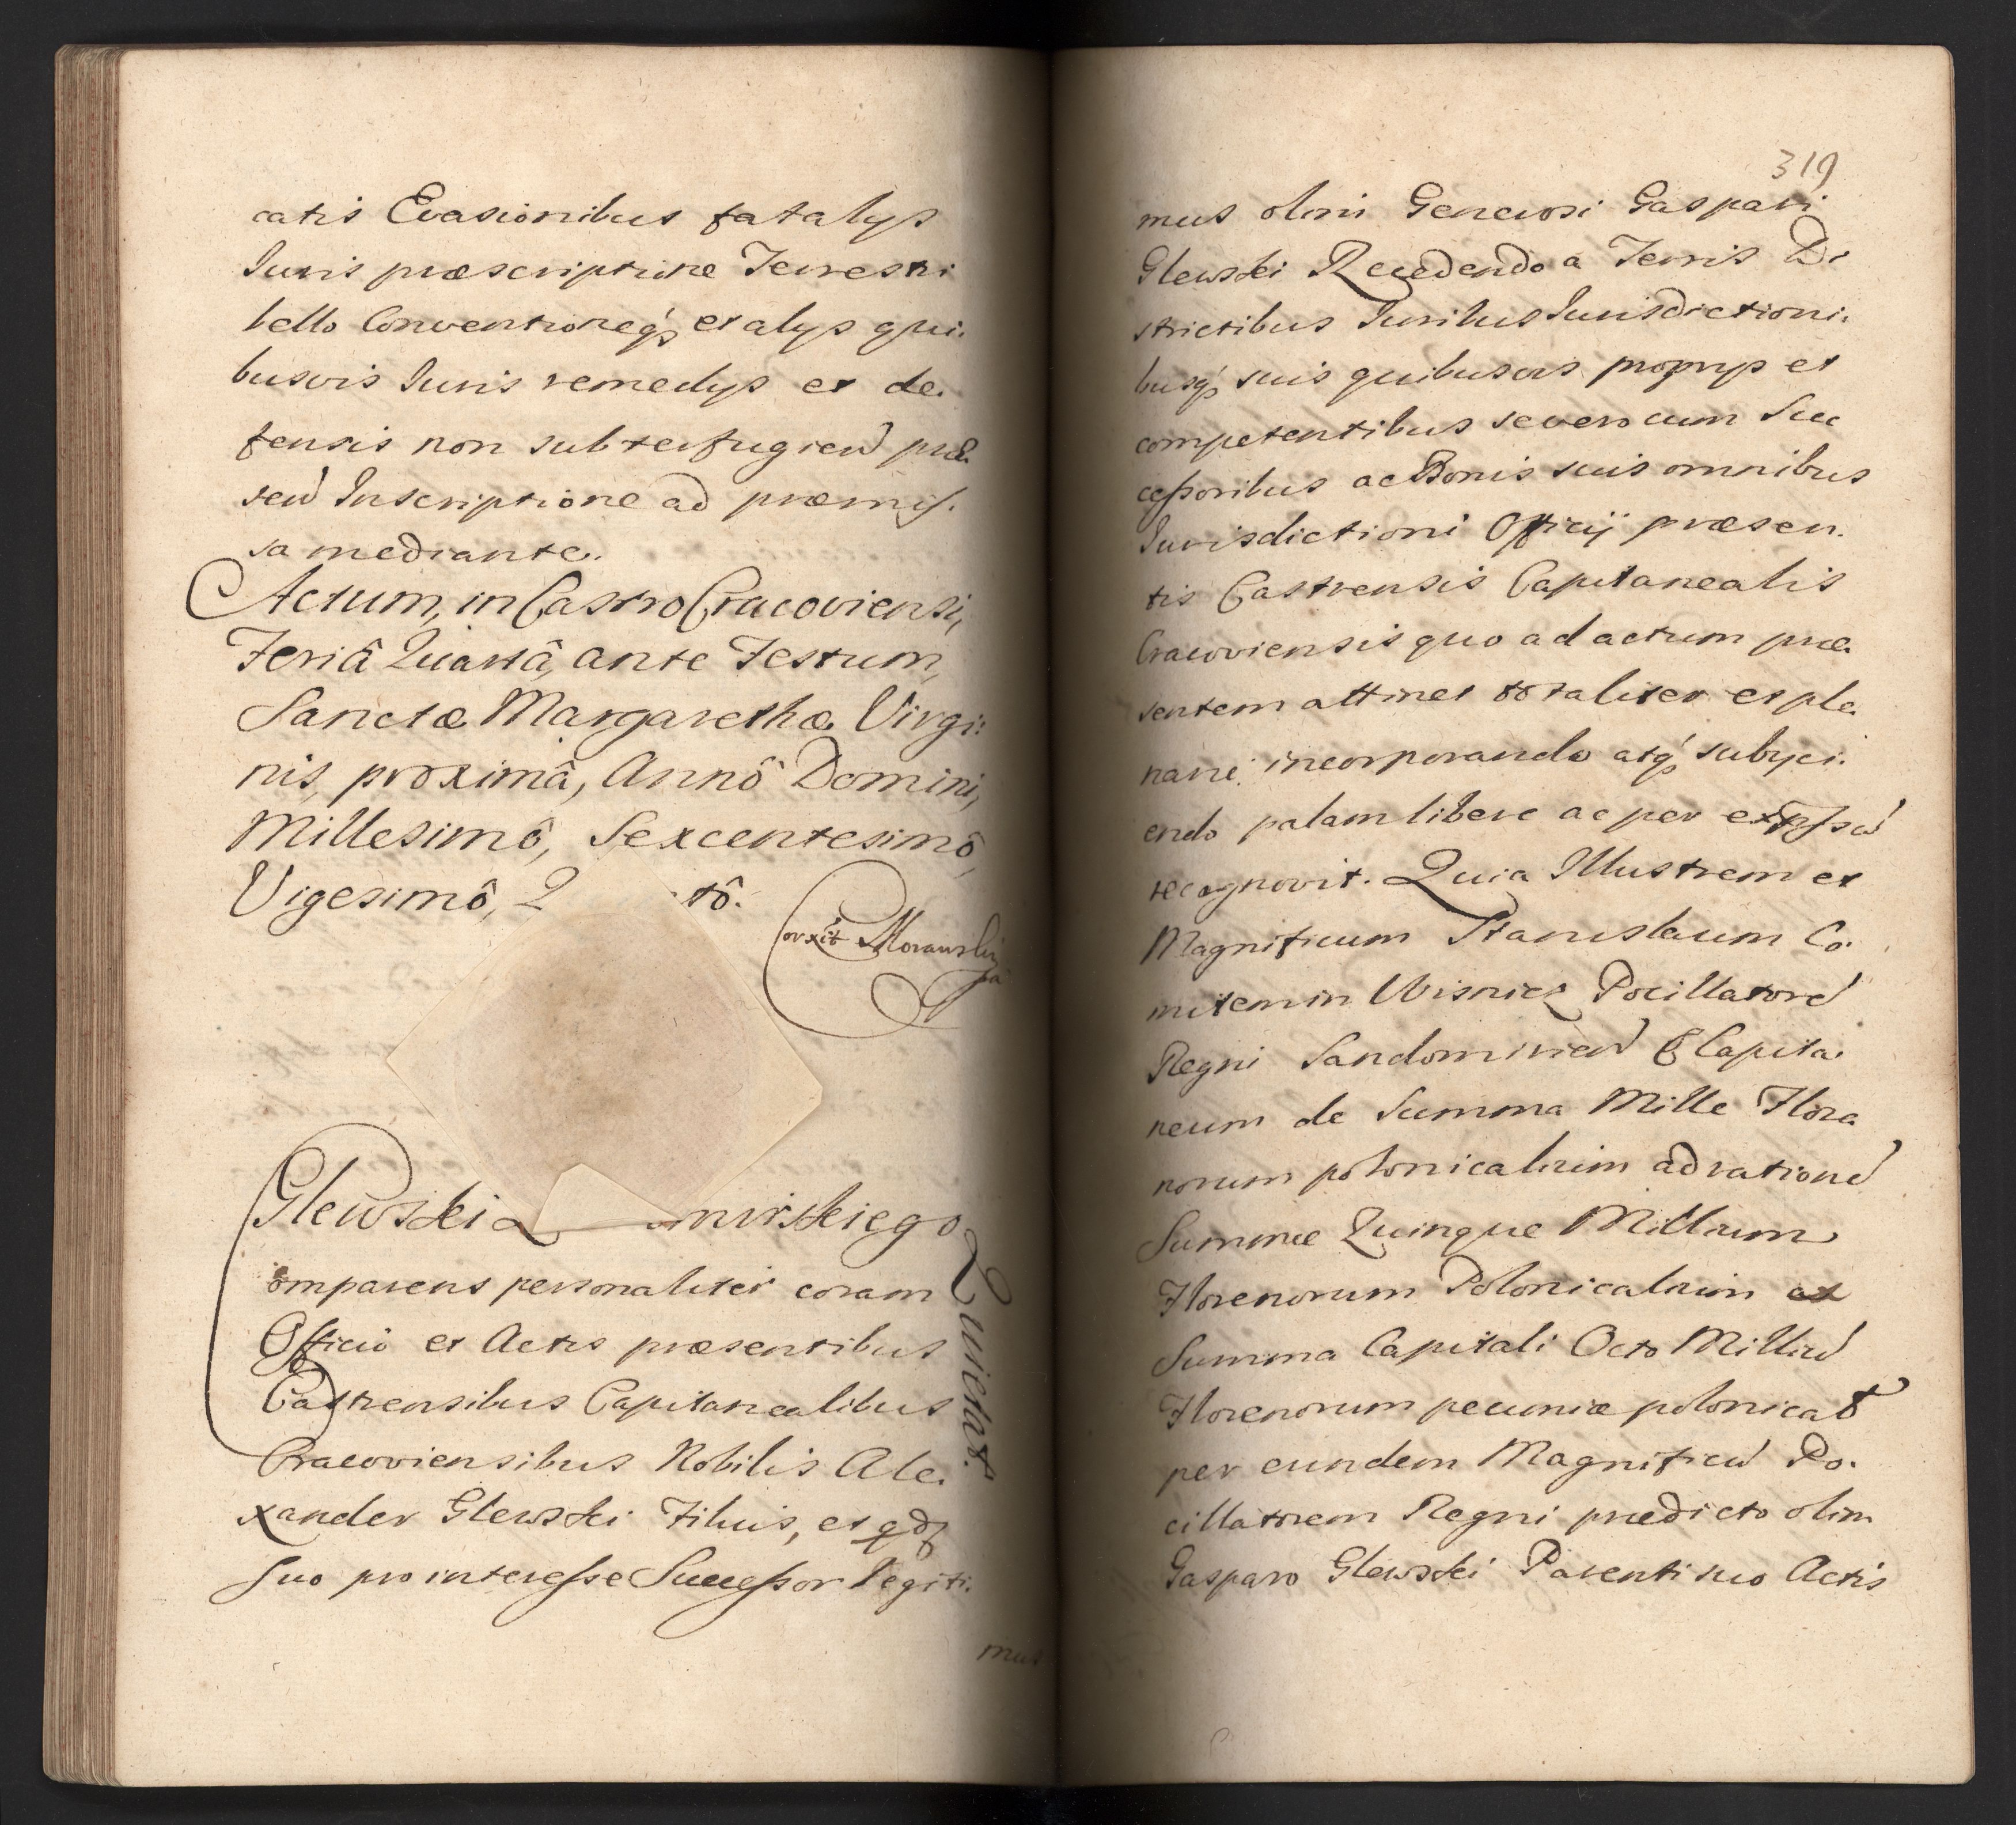 catis Evasionibus fatalys
Juris præscriptione Terrestri
bello Conventioneq́ et alys qui.
busvis Juris remedys et de.
fensis non subterfugien̄ præ
sen̄ Inscriptione ad præmis.
sa mediante.
Actum, in Castro Cracoviensi,
Feriâ Quartâ, ante Festum,
Sanctæ Margarethæ Virgi:
nis, proximâ, Annô Domini,
Millesimô, Sexcentesimô,
Vigesimô, Q tô.
Corxit Morawski
Glewski
mirskiego
Quietat.
Comparens personaliter coram
Officio et Actis præsentibus
Castrensibus Capitanealibus
Cracoviensibus Nobilis Ale.
xander Glewski Filius, et
suo pro interesse Successor legiti.
mus
319
mus olim Generosi Gaspari
Glewski Recedendo a Terris Di
strictibus Juribus Jurisdictioni.
busq́ suis quibusvis proprys et
competentibus se vero cum Suc
cessoribus ac Bonis suis omnibus
Jurisdictioni Officij præsen.
tis Castrensis Capitanealis
Cracoviensis quo ad actum præ.
sentem attinet totaliter et ple.
narie incorporando atq́ subyci.
endo palam libere ac per expressū
recognovit. Quia Illustrem et
Magnificum Stanislaum Co.
mitem in Wisnicz Pocillatorē
Regni Sandomirien̄ & Capita.
neum de Summa Mille Flore
norum polonicalium ad rationē
Summæ Quinque Millium
Florenorum Polonicalium ex
Summa Capitali Octo Milliū
Florenorum pecuniæ polonical
per eundem Magnificū Po.
cillatorem Regni prædicto olim
Gasparo Glewski Parenti suo Actis